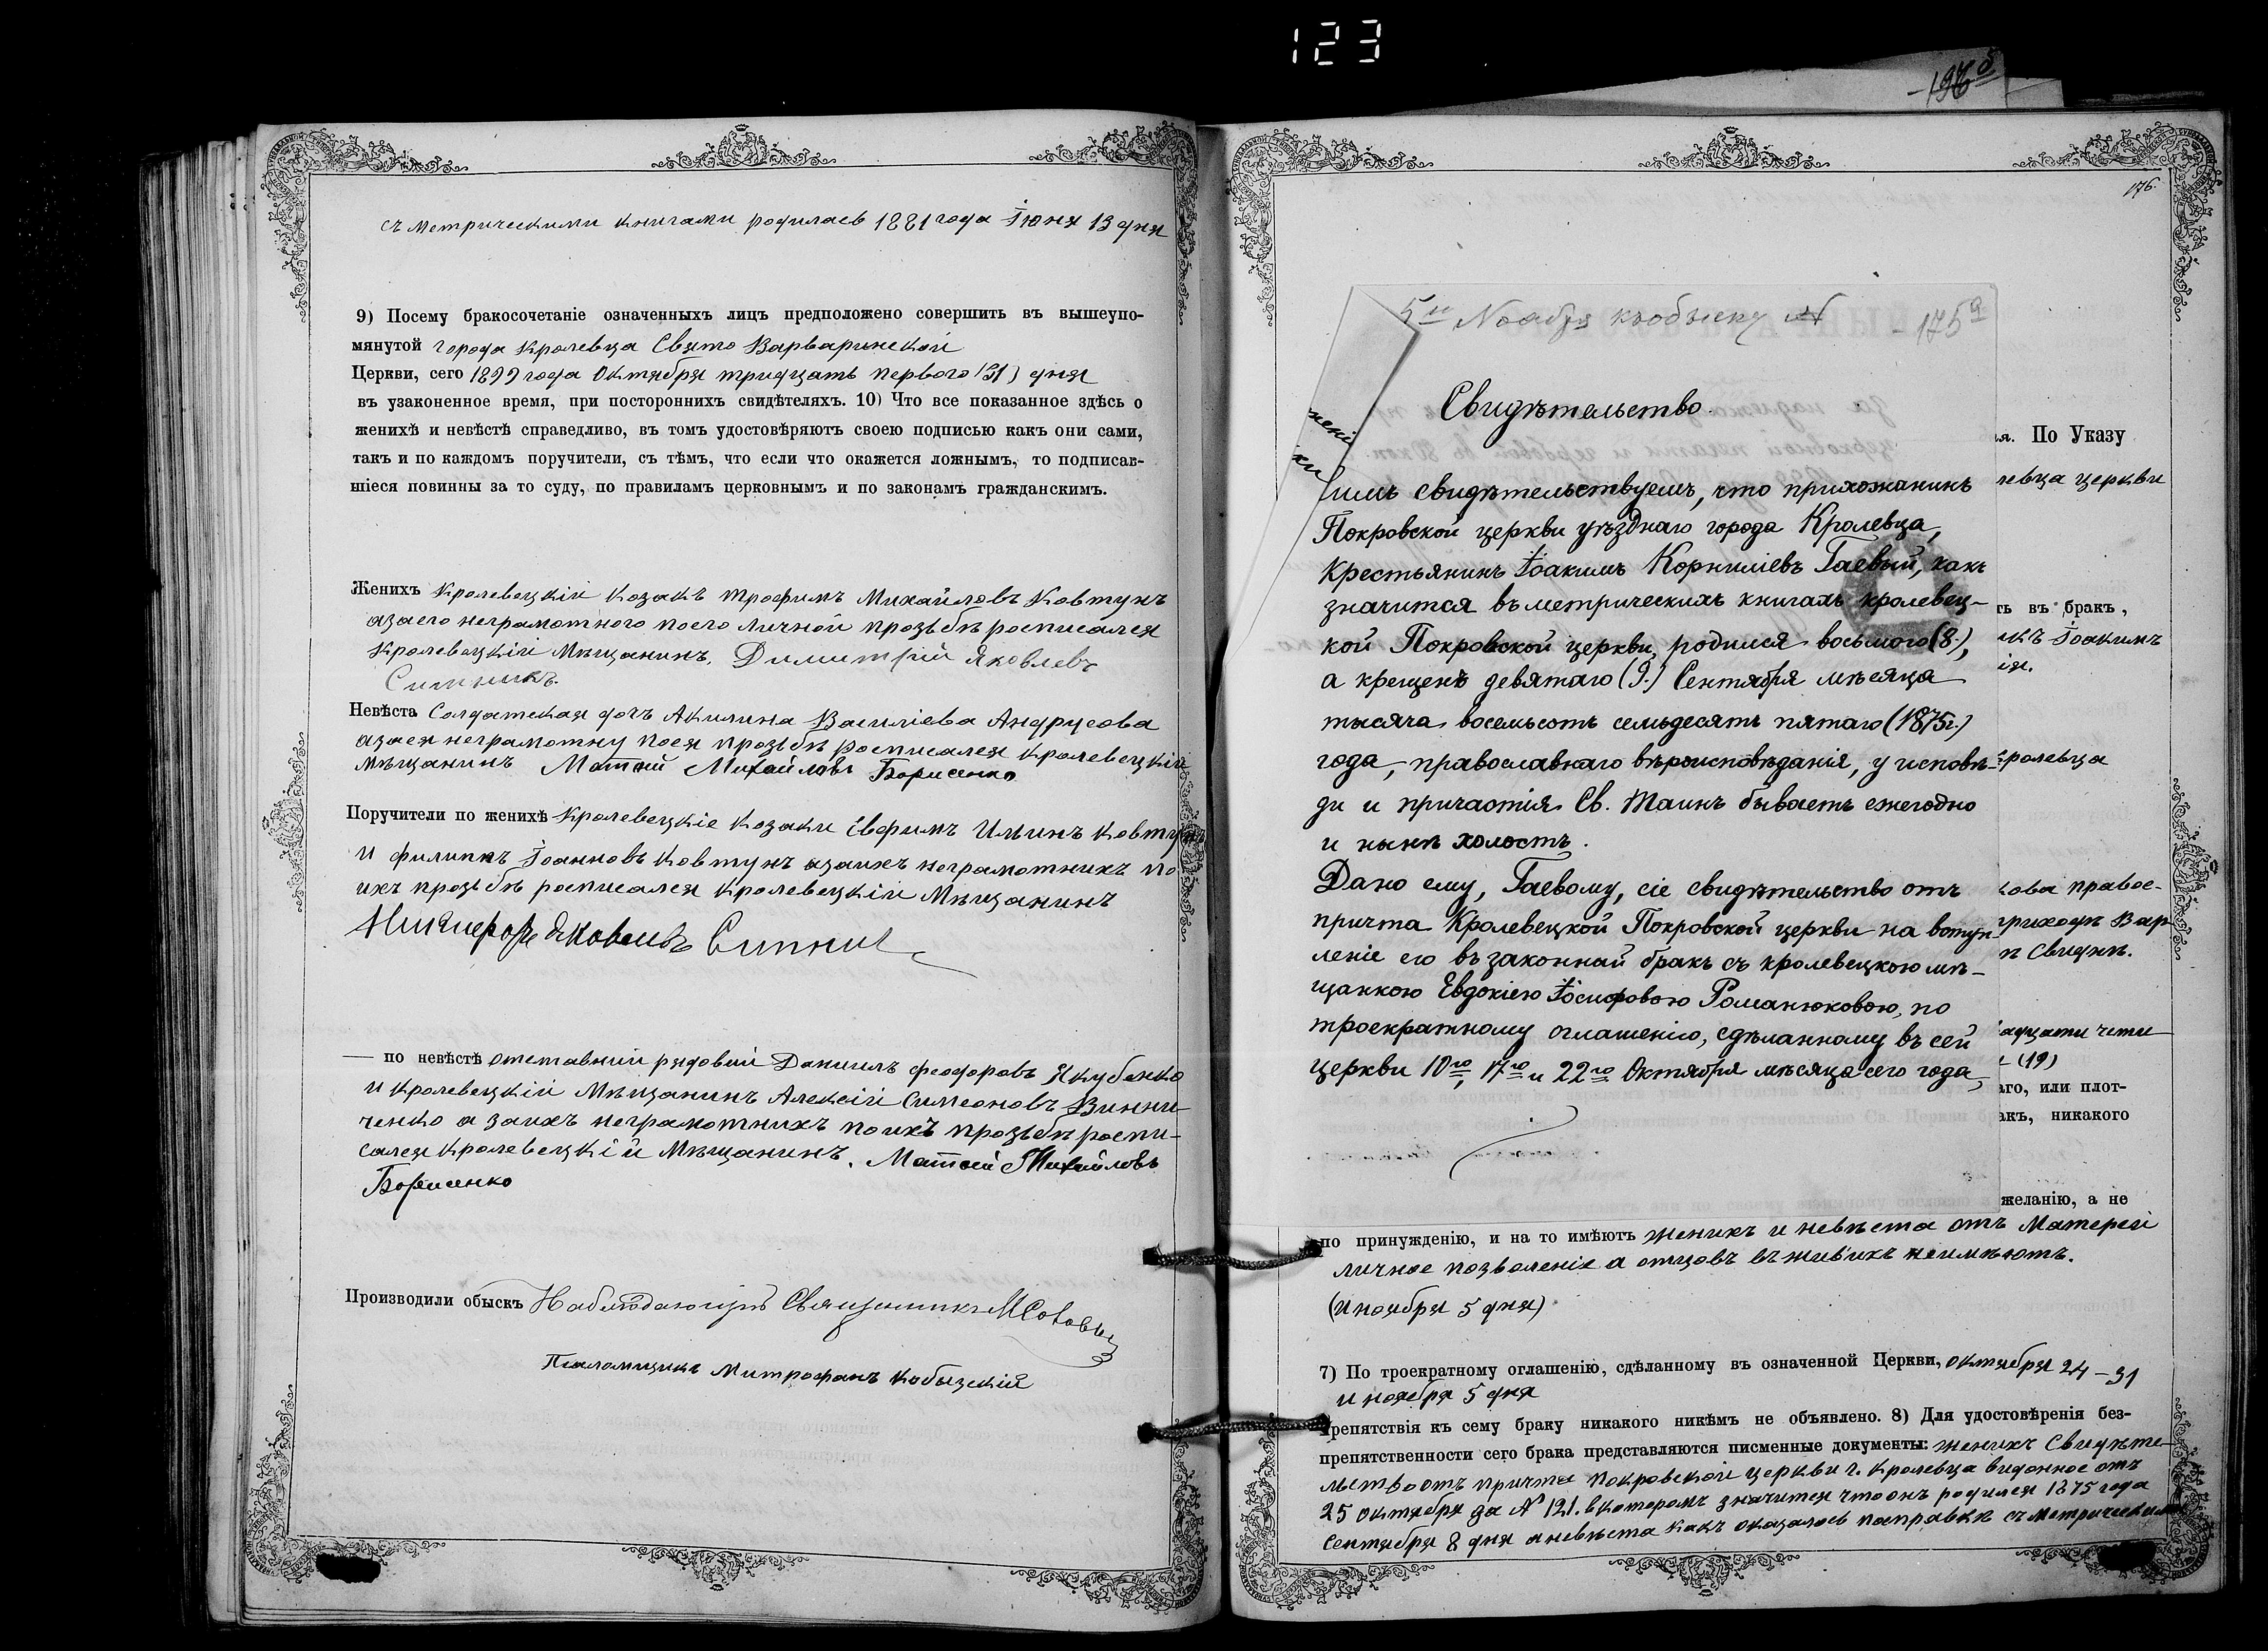 123
съ метрическими книгами родилась 1881 года Іюня 13 дня
9) Посему бракосочетаніе означенныхъ лицъ предположено совершить въ вышеупо-
мянутой города Кролевца Свято Варваринской
Церкви, сего 1899 года Октября тридцать первого (31) дня
въ узаконенное время, при постороннихъ свидѣтеляхъ. 10) Что все показанное здѣсь о
женихѣ и невѣстѣ справедливо, въ томъ удостовѣряютъ своею подписью какъ они сами,
такъ и по каждомъ поручители, съ тѣмъ, что если что окажется ложнымъ, то подписав-
шіеся повинны за то суду, по правиламъ церковнымъ и по законамъ гражданскимъ.
Женихъ Кролевецкій Козакъ Трофимъ Михайловъ Ковтунъ
азаего неграмотного поего личной прозьбѣ росписался
Кролевецкій Мѣщанинъ. Димитрій Яковлевъ
Ситникъ.
Невѣста Солдатская дочъ Акилина Василіева Андрусова
азаея неграмотну поея прозьбѣ росписался Кролевецкій
Мѣщанинъ Матѳей Михайловъ Борисенко
Поручители по женихѣ Кролевецкіе Козаки Евфимъ Ильинъ Ковтунъ
и филиппъ Іоанновъ Ковтунъ азаихъ неграмотнихъ по
ихъ прозьбѣ росписался Кролевецкій Мѣщанинъ
Яковлевъ Ситник
— по невѣстѣ отставний рядовий Даниилъ феодоровъ Якубенко
и Кролевецкій Мѣщанинъ Алексій Симеоновъ Винни-
ченко а заихъ неграмотнихъ поихъ прозьбѣ роспи-
сался Кролевецкій Мѣщанинъ. Матѳей Михайловъ
Борисенко
Производили обыскъ Наблюдающій Священникъ
Псаломщикъ Митрофанъ Кобызскій
176.
5го Ноября къ обыску № - 175
Свидѣтельство.
симъ свидѣтельствуемъ, что прихожанинъ
Покровской церкви уѣзднаго города Кролевца,
крестьянинъ Іоакимъ Корниліевъ Гаевый, какъ
значится въ метрическихъ книгахъ кролевец-
кой Покровской церкви, родился восьмого (8.),
а крещенъ девятаго (9.) Сентября мѣсяца
тысяча восемьсотъ семьдесятъ пятаго (1875г.)
года, православнаго вѣроисповѣданія, у исповѣ-
ди и причастія Св. Таинъ бываетъ ежегодно
и нынѣ холостъ.
Дано ему, Гаевому, сіе свидѣтельство отъ
причта Кролевецкой Покровской церкви на вступ-
леніе его въ законный бракъ съ кролевецкою мѣ-
щанкою Евдокіею Іосифовою Романюковою, по
троекратному оглашенію, сдѣланному въ сей
церкви 10го, 17го и 22го Октября мѣсяца сего года,
я. По Указу
левца церкви
ть въ бракъ,
Іоакимъ
ія.
кролевца
кова правос-
приходъ Вар
Свидѣ.
адцати чети
(19)
аго, или плот-
акъ, никакого
желанію, а не
по принужденію, и на то имѣютъ женихъ и невѣста отъ Матерей
личное позволеніе а отцовъ въ живихъ неимѣютъ.
(и ноября 5 дня)
7) По троекратному оглашенію, сдѣланному въ означенной Церкви, октября 24 – 31
и ноября 5 дня
препятствія къ сему браку никакого никѣмъ не объявлено. 8) Для удостовѣренія без-
препятственности сего брака представляются писменные документы: женихъ Свидѣте-
льство отъ причта Покровской церкви г. Кролевца виданное отъ
25 октября за № 121. вкоторомъ значится что онъ родился 1875 года
Сентября 8 дня а невѣста какъ оказалось посправкѣ съ метрическими